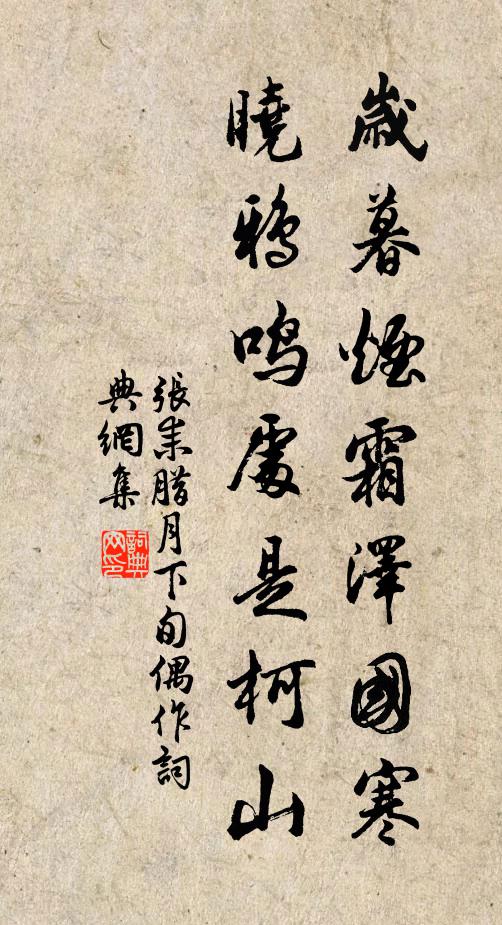 歲暮煙霜澤國寒
曉鴉鳴處是柯山
張耒臘月下旬偶作詞
典網集
詞典網印